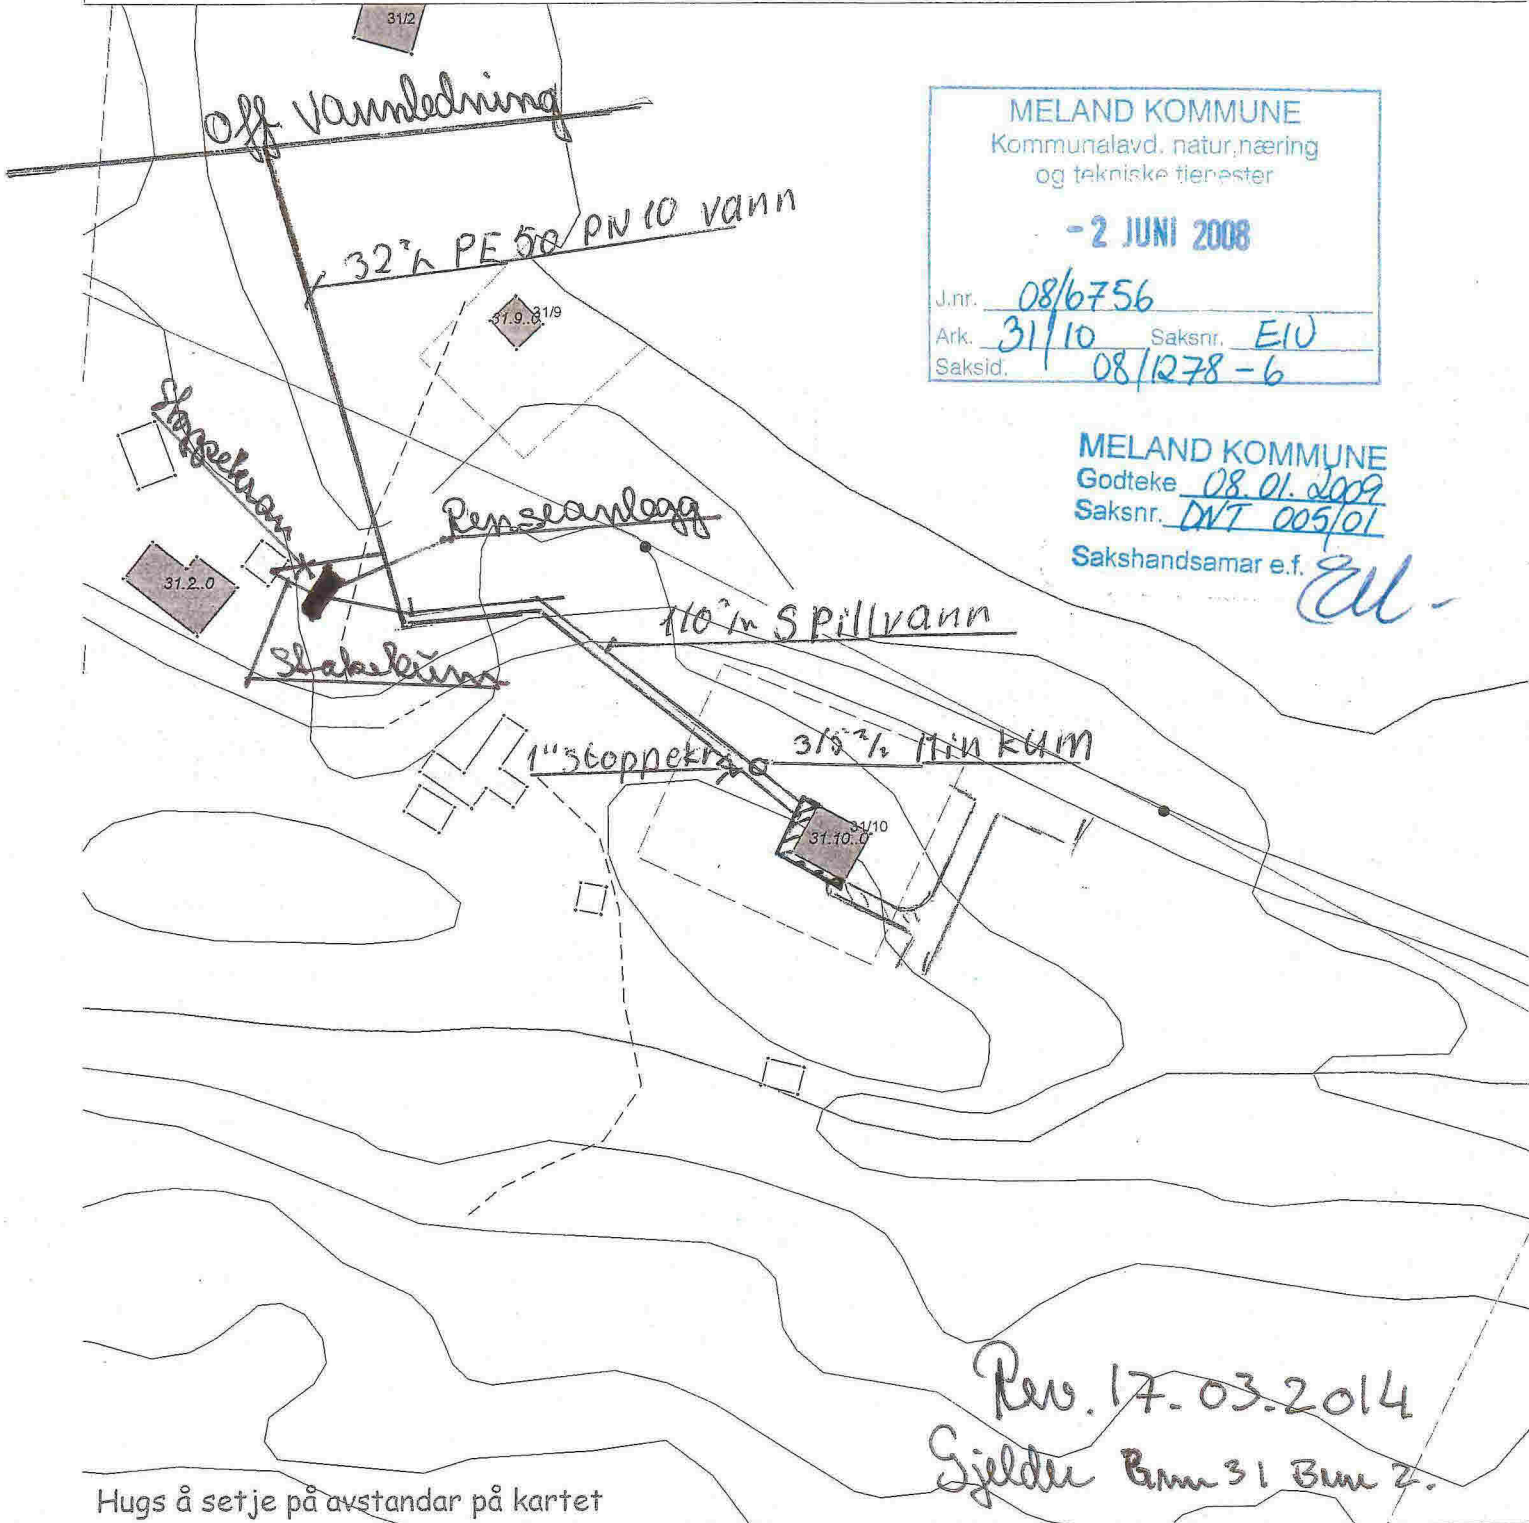 31/2
Off Vannledning
32 m/m PE 50 PN 10 vann
31.9..0
31/9
MELAND KOMMUNE
Kommunalavd. natur, næring
og tekniske tjenester
- 2 JUNI 2008
J.nr. 08/6756
Ark. 31/10 Saksnr. EIU
Saksid. 08/1278 - 6
MELAND KOMMUNE
Godteke 08.01.2009
Saksnr. DNT 005/01
Sakshandsamar e.f.
Stoppekran
Renseanlegg
31.2..0
110 m/m Spillvann
Stakekum
1" Stoppekr
315 m/m Min kum
31/10
31.10..0
Rev. 17.03.2014
Gjelder Gnr 31 Bnr 2.
Hugs å setje på avstandar på kartet